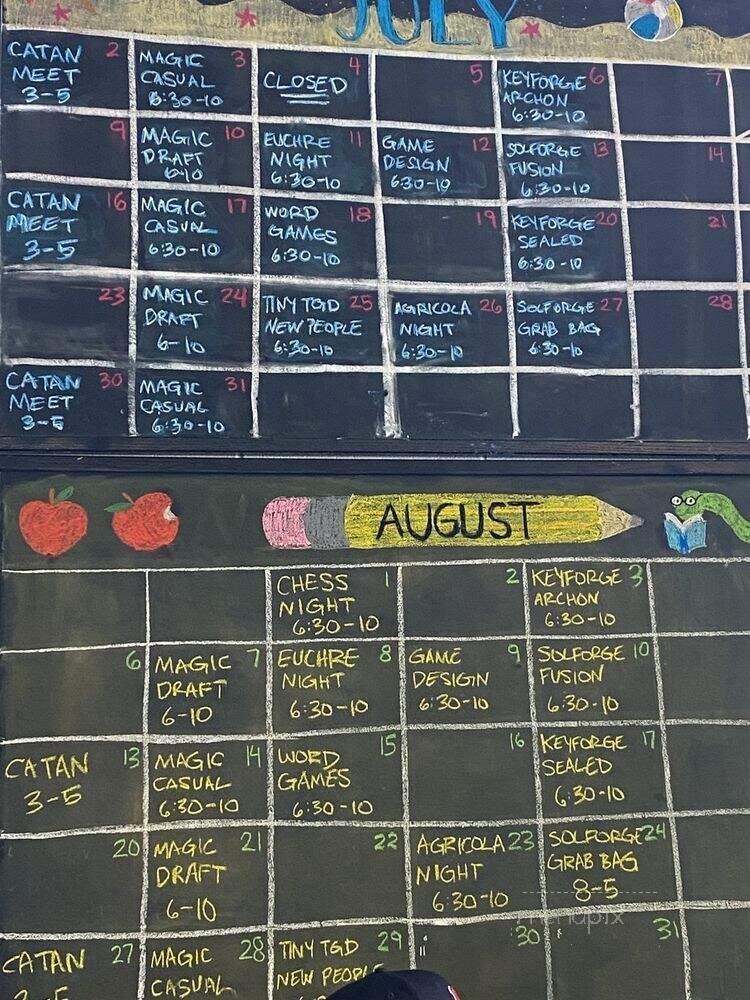 JULY
CATAN MEET 3-5 2
MAGIC CASUAL 6:30-10 3
CLOSED 4
5
KEYFORGE ARCHON 6:30-10 6
7
9
MAGIC DRAFT 6-10 10
EUCHRE NIGHT 6:30-10 11
GAME DESIGN 6:30-10 12
SOLFORGE FUSION 6:30-10 13
14
CATAN MEET 3-5 16
MAGIC CASUAL 6:30-10 17
WORD GAMES 6:30-10 18
19
KEYFORGE SEALED 6:30-10 20
21
23
MAGIC DRAFT 6-10 24
TINY TGD NEW PEOPLE 6:30-10 25
AGRICOLA NIGHT 6:30-10 26
SOLFORGE GRAB BAG 6:30-10 27
28
CATAN MEET 3-5 30
MAGIC CASUAL 6:30-10 31
AUGUST
CHESS NIGHT 6:30-10 1
2
KEYFORGE ARCHON 6:30-10 3
6
MAGIC DRAFT 6-10 7
EUCHRE NIGHT 6:30-10 8
GAME DESIGN 6:30-10 9
SOLFORGE FUSION 6:30-10 10
CATAN 3-5 13
MAGIC CASUAL 6:30-10 14
WORD GAMES 6:30-10 15
16
KEYFORGE SEALED 6:30-10 17
20
MAGIC DRAFT 6-10 21
22
AGRICOLA NIGHT 6:30-10 23
SOLFORGE GRAB BAG 8-5 24
CATAN 27
MAGIC CASUAL 28
TINY TGD NEW PEOPLE 29
30
31